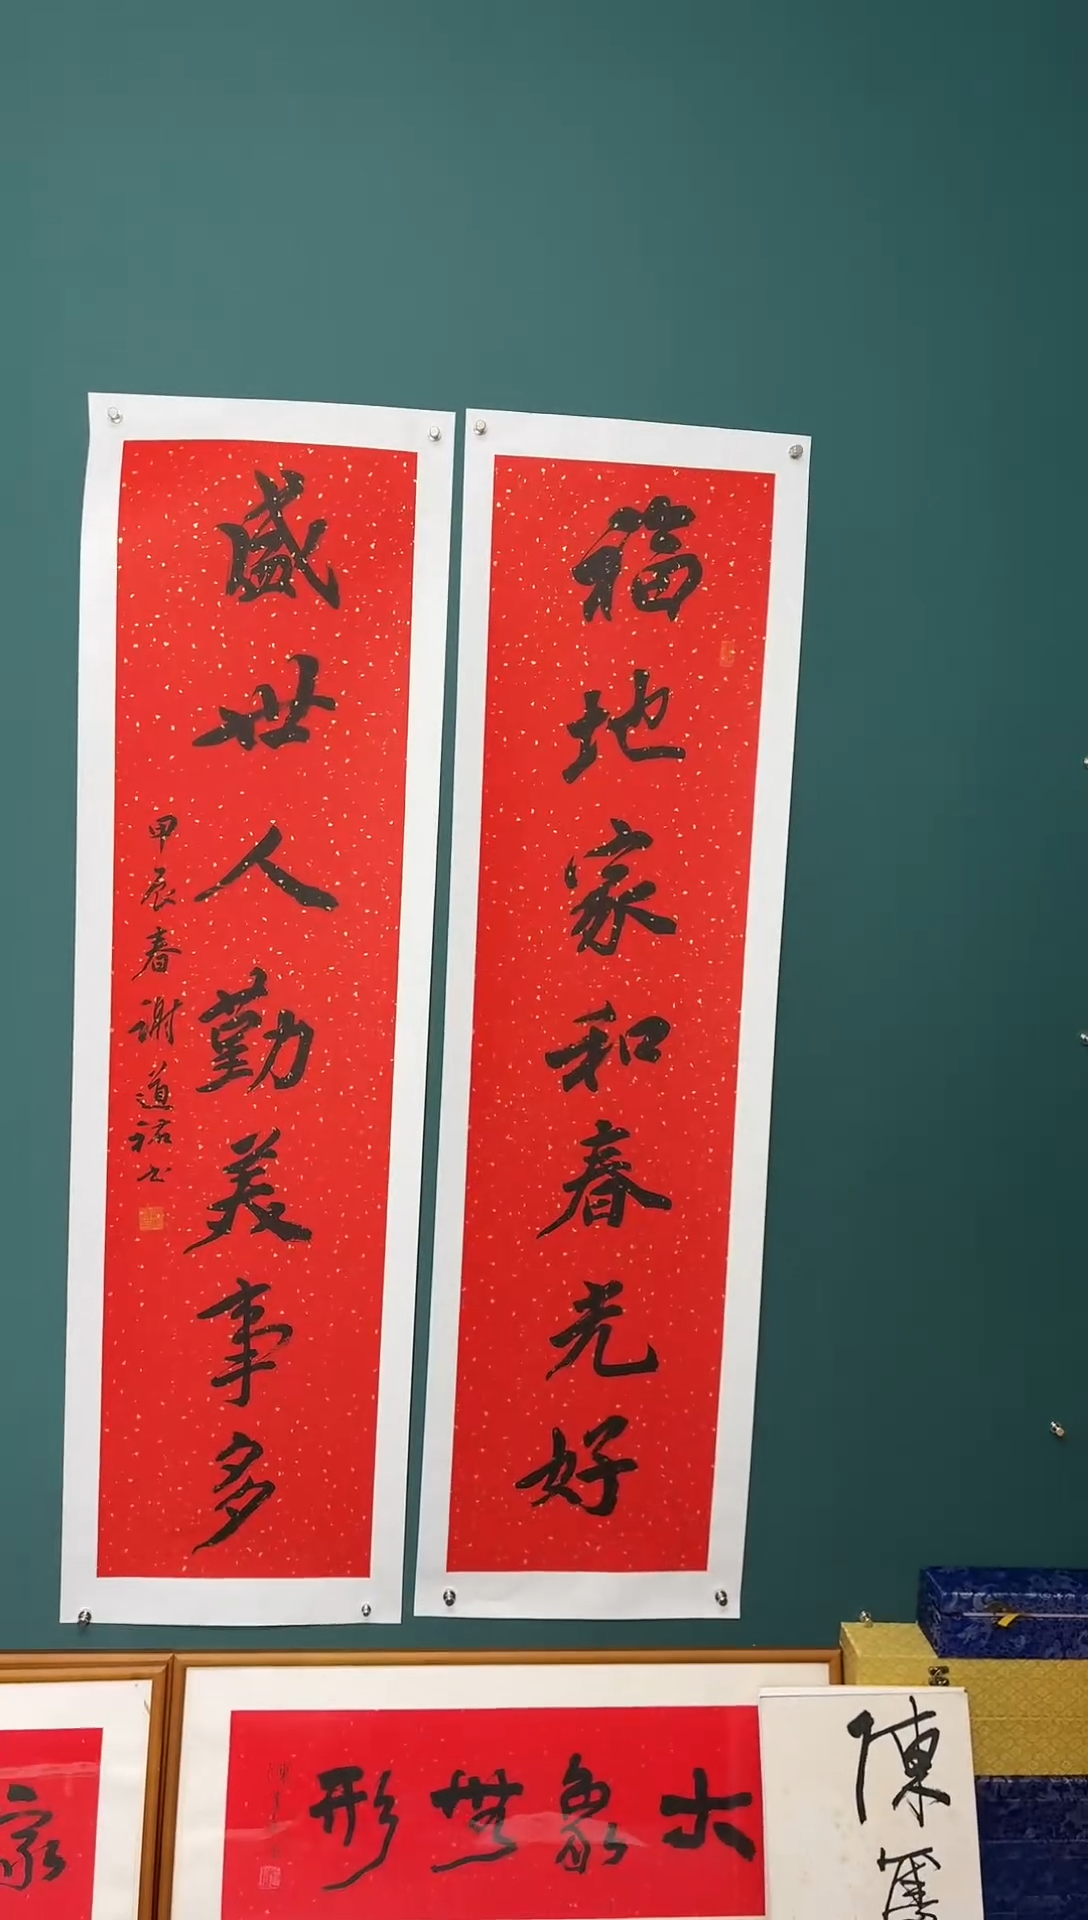 福地家和春光好
盛世人勤美事多
甲辰春谢道祐书
大象無形
家
陳篤